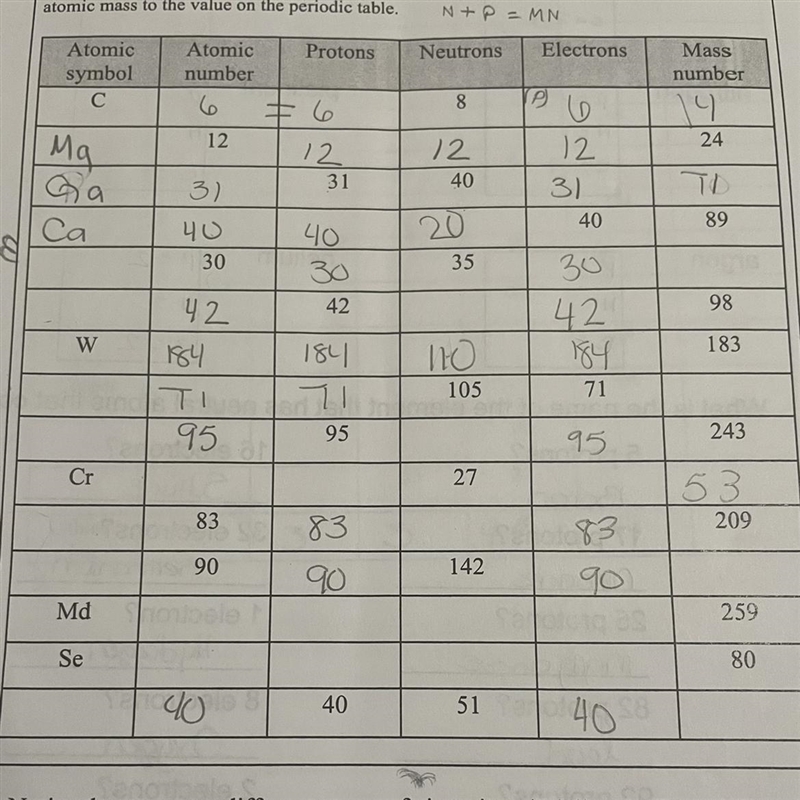 atomic mass to the value on the periodic table. N + P = MN
Atomic symbol Atomic number Protons Neutrons Electrons Mass number
C 6 = 6 8 (P) 6 14
Mg 12 12 12 12 24
Ga 31 31 40 31 71
Ca 40 40 20 40 89
30 30 35 30
42 42 42 98
W 184 184 110 184 183
71 71 105 71
95 95 95 243
Cr 27 53
83 83 83 209
90 90 142 90
Md 259
Se 80
40 40 51 40